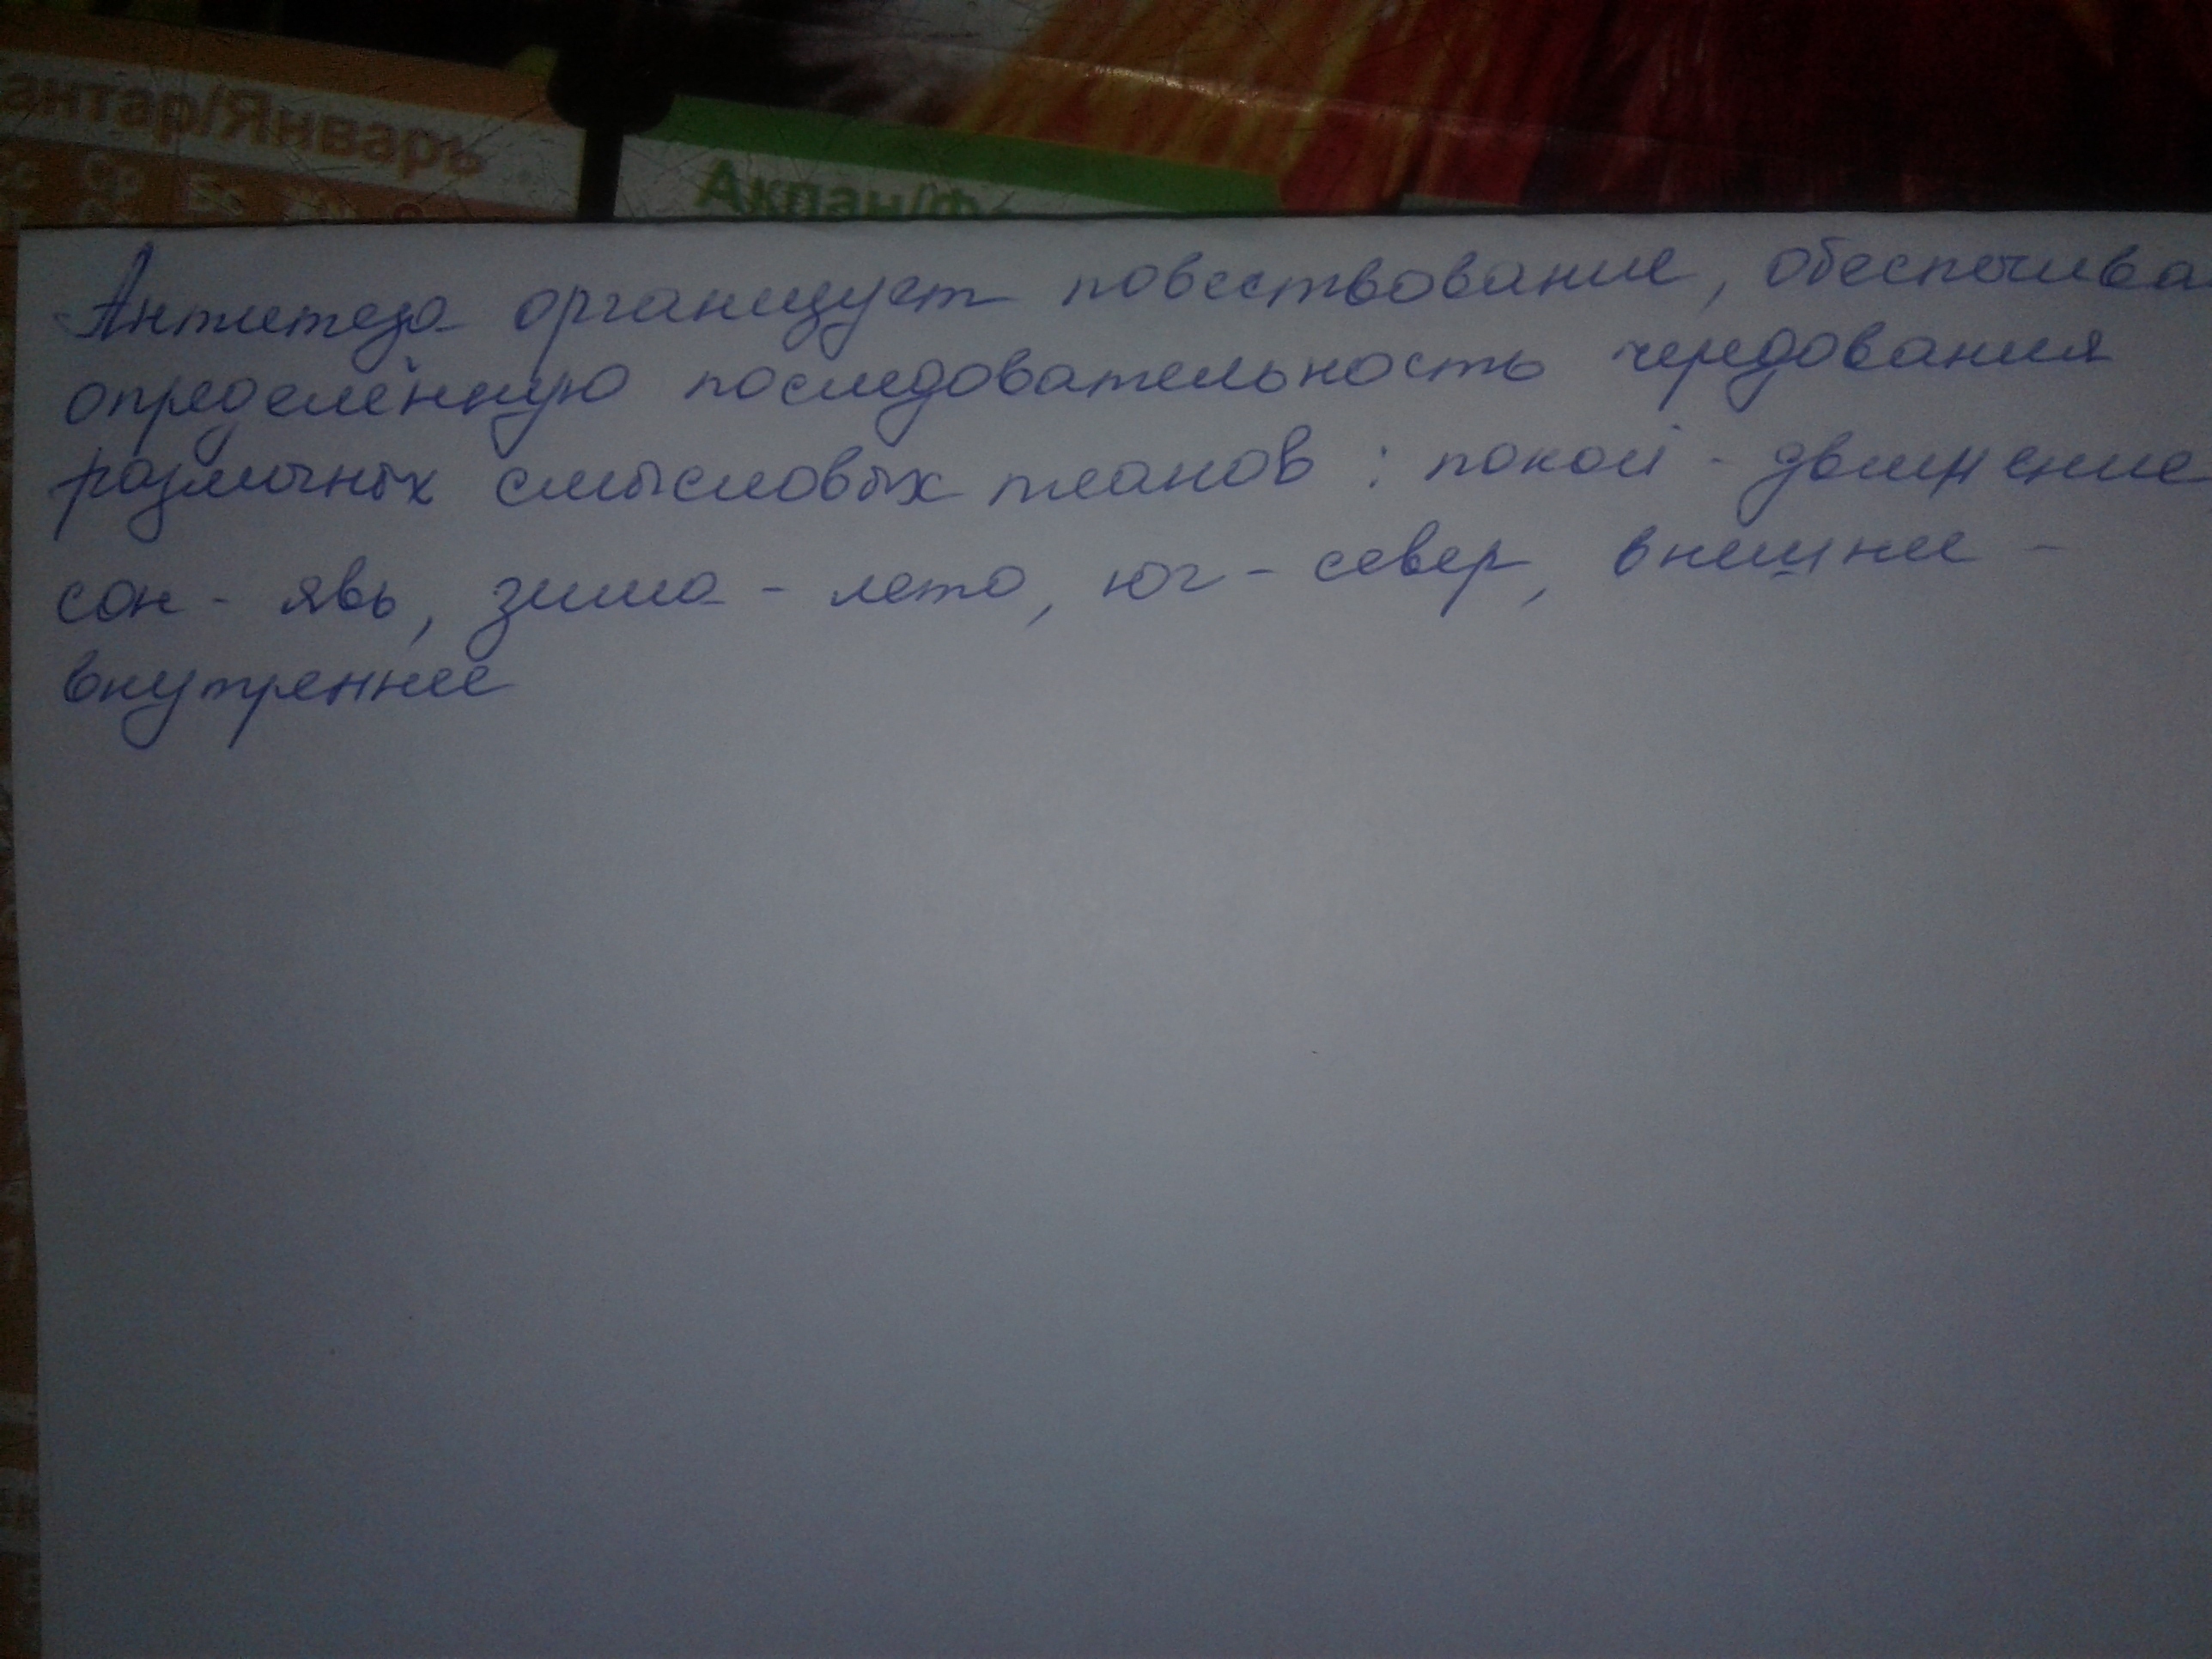 антар/Январь
Ср Бс
Акпан/Фе
Антитеза организует повествование, обеспечива
определённую последовательность чередования
различных смысловых планов: покой - движение
сон - явь, зима - лето, юг - север, внешнее -
внутреннее